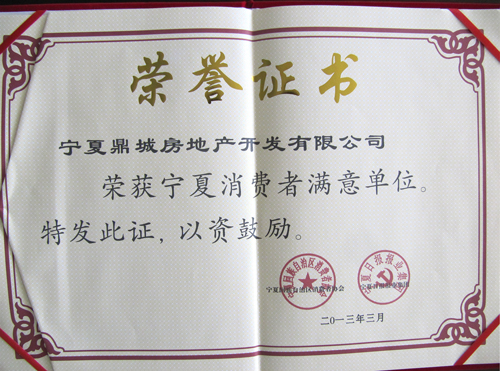 荣誉证书
宁夏鼎城房地产开发有限公司
荣获宁夏消费者满意单位。
特发此证，以资鼓励。
宁夏回族自治区消费者协会
宁夏日报报业集团
二〇一三年三月